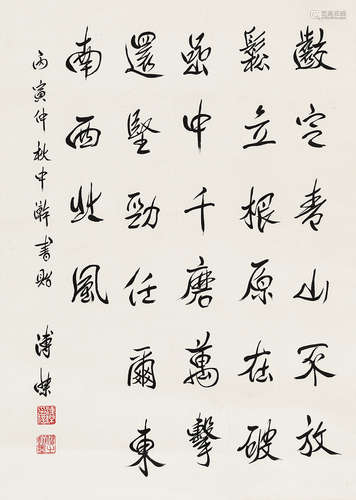 齩定青山不放
鬆立根原在破
嵒中千磨萬擊
還堅勁任爾東
南西北風
丙寅仲秋中澣書貽 溥傑